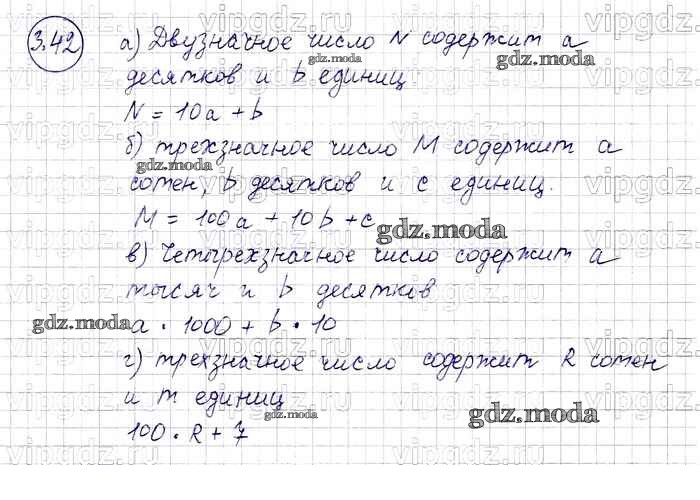 3.42
а) Двузначное число N содержит а
десятков и b единиц.
N = 10a + b
б) трехзначное число М содержит а
сотен, b десятков и с единиц.
M = 100a + 10b + c
в) Четырехзначное число содержит а
тысяч и b десятков
a · 1000 + b · 10
г) трехзначное число содержит R сотен
и m единиц
100 · R + 7
gdz.moda
gdz.moda
gdz.moda
gdz.moda
gdz.moda
gdz.moda
gdz.moda
vipgdz.ru